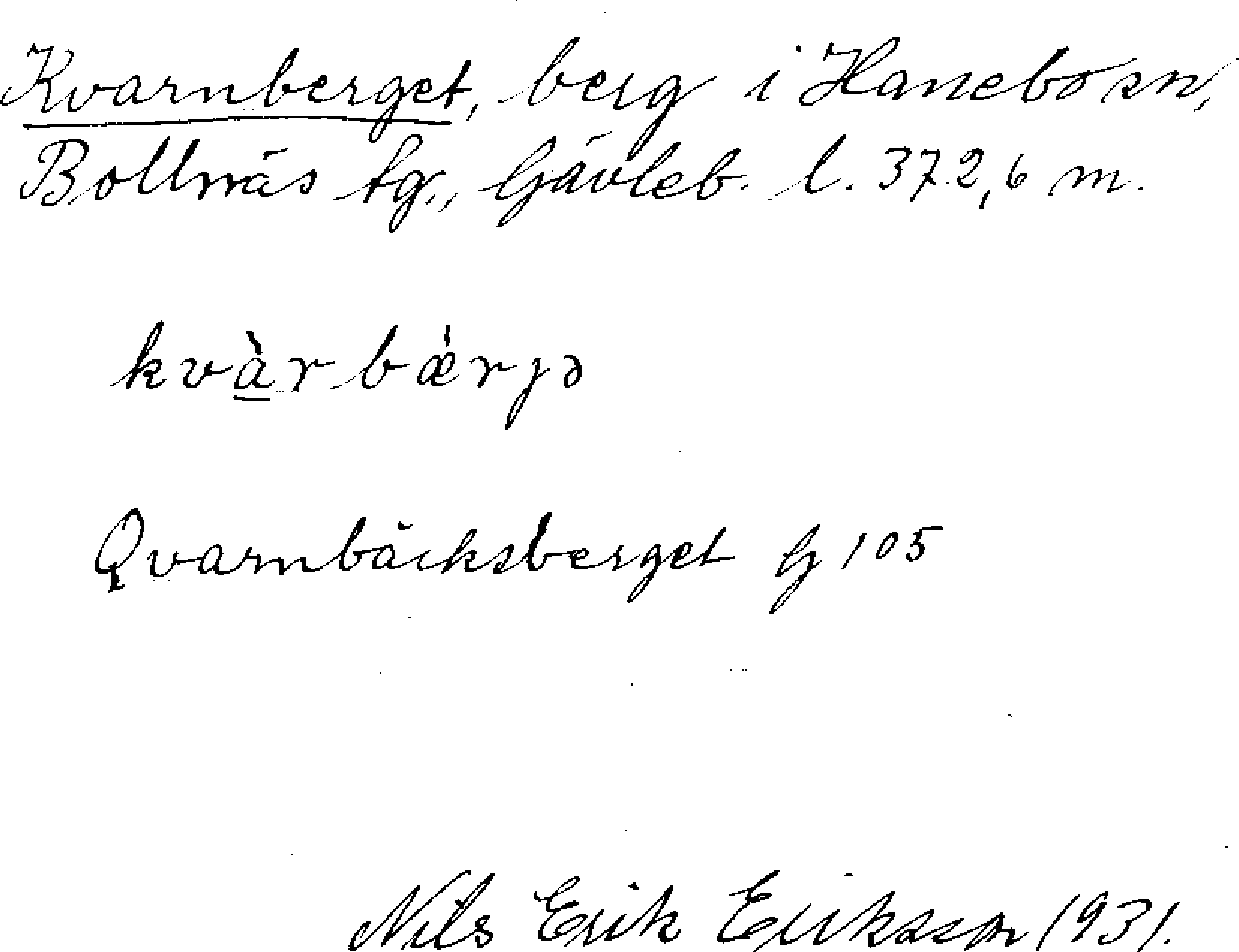 Kvarnberget, berg i Hanebo sn,
Bollnäs tg., Gävleb. l. 372,6 m.
kvà̱r bǽrȷə
Qvarnbäcksberget G 105
Nils Erik Eriksson 1931.